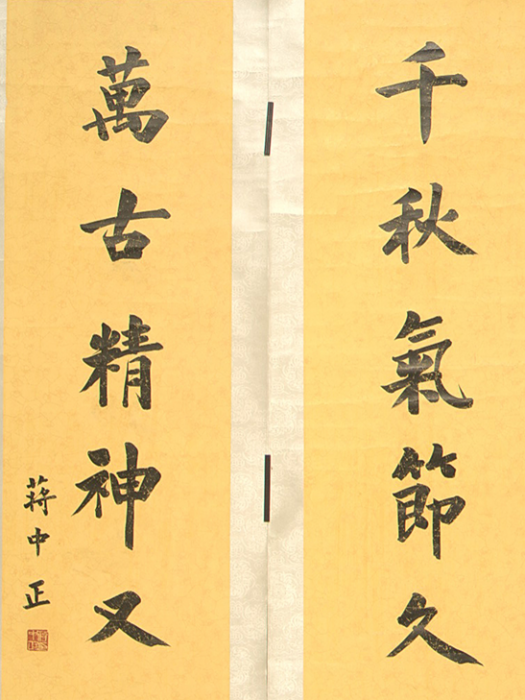 千秋氣節久
萬古精神又
蔣中正